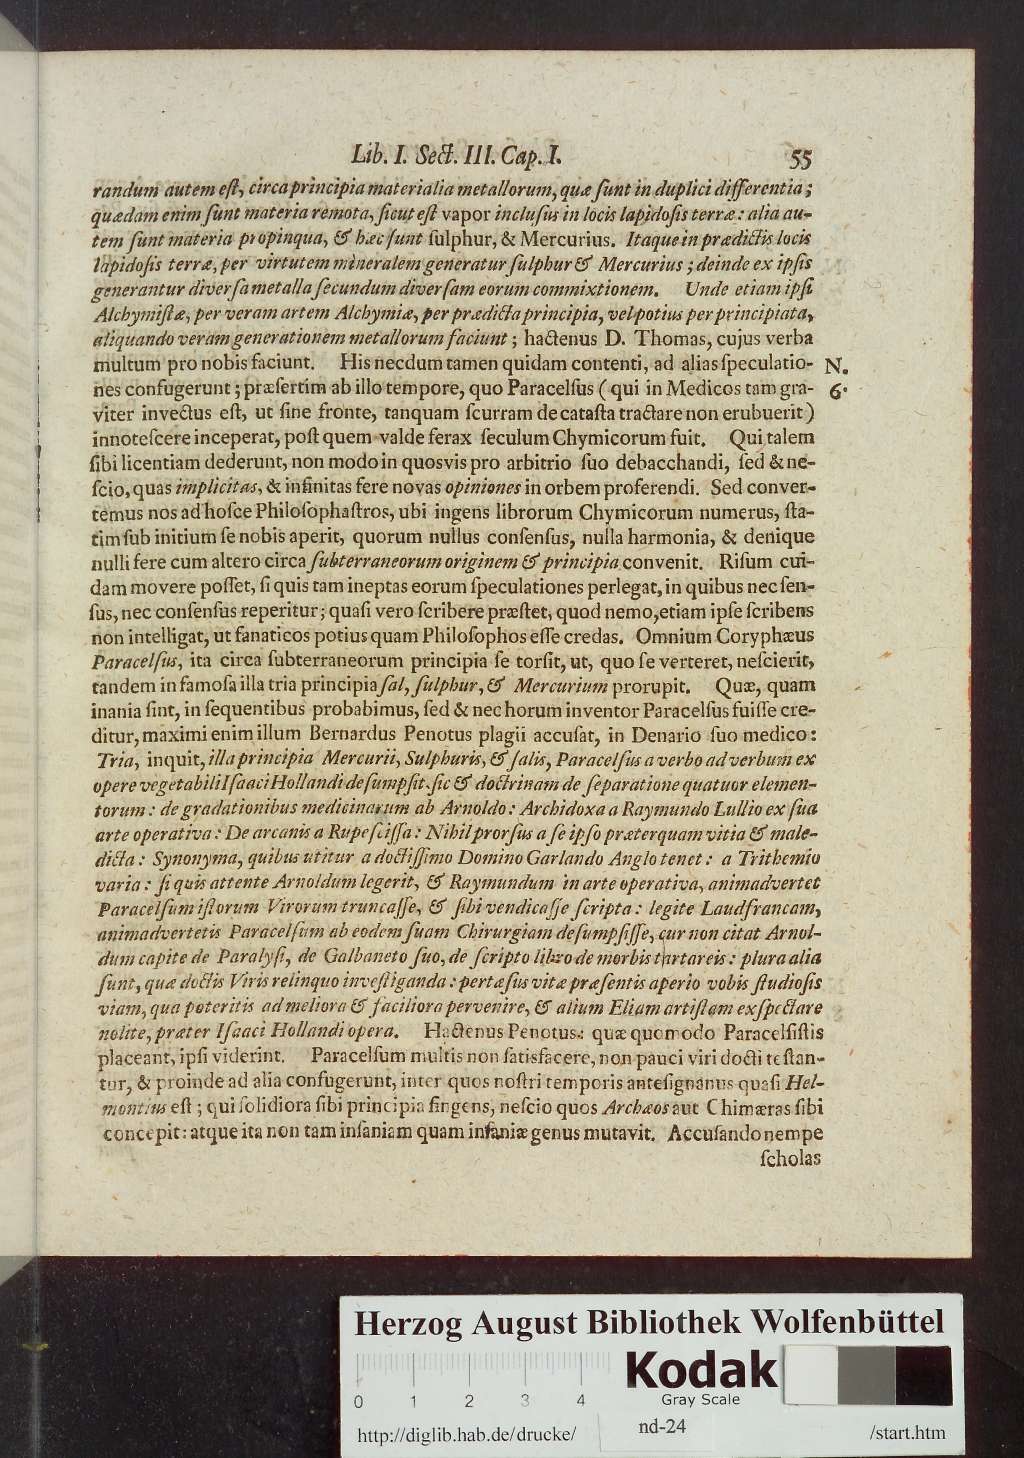 Lib. I. Sect. III. Cap. I. 55
randum autem est, circa principia materialia metallorum, quæ ſunt in duplici differentia;
quædam enim ſunt materia remota, ſicut eſt vapor incluſus in locis lapidoſis terræ: alia au-
tem ſunt materia propinqua, & hæc ſunt ſulphur, & Mercurius. Itaque in prædictis locis
lapidoſis terræ, per virtutem mineralem generatur ſulphur & Mercurius; deinde ex ipſis
generantur diverſa metalla ſecundum diverſam eorum commixtionem. Unde etiam ipſi
Alchymiſtæ, per veram artem Alchymiæ, per prædicta principia, vel potius per principiata,
aliquando veram generationem metallorum faciunt; hactenus D. Thomas, cujus verba
multum pro nobis faciunt. His necdum tamen quidam contenti, ad alias ſpeculatio- N.
nes confugerunt; præſertim ab illo tempore, quo Paracelſus (qui in Medicos tam gra- 6.
viter invectus eſt, ut ſine fronte, tanquam ſcurram de cataſta tractare non erubuerit)
innoteſcere inceperat, poſt quem valde ferax ſeculum Chymicorum fuit. Qui talem
ſibi licentiam dederunt, non modo in quosvis pro arbitrio ſuo debacchandi, ſed & ne-
ſcio, quas implicitas, & infinitas fere novas opiniones in orbem proferendi. Sed conver-
temus nos ad hoſce Philoſophaſtros, ubi ingens librorum Chymicorum numerus, ſta-
tim ſub initium ſe nobis aperit, quorum nullus conſenſus, nulla harmonia, & denique
nulli fere cum altero circa ſubterraneorum originem & principia convenit. Riſum cui-
dam movere poſſet, ſi quis tam ineptas eorum ſpeculationes perlegat, in quibus nec ſen-
ſus, nec conſenſus reperitur; quaſi vero ſcribere præſtet, quod nemo, etiam ipſe ſcribens
non intelligat, ut fanaticos potius quam Philoſophos eſſe credas. Omnium Coryphæus
Paracelſus, ita circa ſubterraneorum principia ſe torſit, ut, quo ſe verteret, neſcierit,
tandem in famoſa illa tria principia ſal, ſulphur, & Mercurium prorupit. Quæ, quam
inania ſint, in ſequentibus probabimus, ſed & nec horum inventor Paracelſus fuiſſe cre-
ditur, maximi enim illum Bernardus Penotus plagii accuſat, in Denario ſuo medico:
Tria, inquit, illa principia Mercurii, Sulphuris, & ſalis, Paracelſus a verbo ad verbum ex
opere vegetabili Iſaaci Hollandi deſumpſit, ſic & doctrinam de ſeparatione quatuor elemen-
torum: de gradationibus medicinarum ab Arnoldo: Archidoxa a Raymundo Lullio ex ſua
arte operativa: De arcanis a Rupeſciſſa: Nihil prorſus a ſe ipſo præterquam vitia & male-
dicta: Synonyma, quibus utitur a doctiſſimo Domino Garlando Anglo tenet: a Trithemio
varia: ſi quis attente Arnoldum legerit, & Raymundum in arte operativa, animadvertet
Paracelſum iſtorum Virorum truncaſſe, & ſibi vendicaſſe ſcripta: legite Laudfrancam,
animadvertetis Paracelſum ab eodem ſuam Chirurgiam deſumpſiſſe, cur non citat Arnol-
dum capite de Paralyſi, de Galbaneto ſuo, de ſcripto libro de morbis tartareis: plura alia
ſunt, quæ doctis Viris relinquo inveſtiganda: pertæſus vitæ præſentis aperio vobis ſtudioſis
viam, qua poteritis ad meliora & faciliora pervenire, & alium Eliam artiſtam exſpectare
nolite, præter Iſaaci Hollandi opera. Hactenus Penotus: quæ quomodo Paracelſiſtis
placeant, ipſi viderint. Paracelſum multis non ſatisfacere, non pauci viri docti teſtan-
tur, & proinde ad alia confugerunt, inter quos noſtri temporis anteſignanus quaſi Hel-
montius eſt; qui ſolidiora ſibi principia fingens, neſcio quos Archæos aut Chimæras ſibi
concepit: atque ita non tam inſaniam quam inſaniæ genus mutavit. Accuſando nempe
ſcholas
Herzog August Bibliothek Wolfenbüttel
Kodak
Gray Scale
0 1 2 3 4
http://diglib.hab.de/drucke/ nd-24 /start.htm